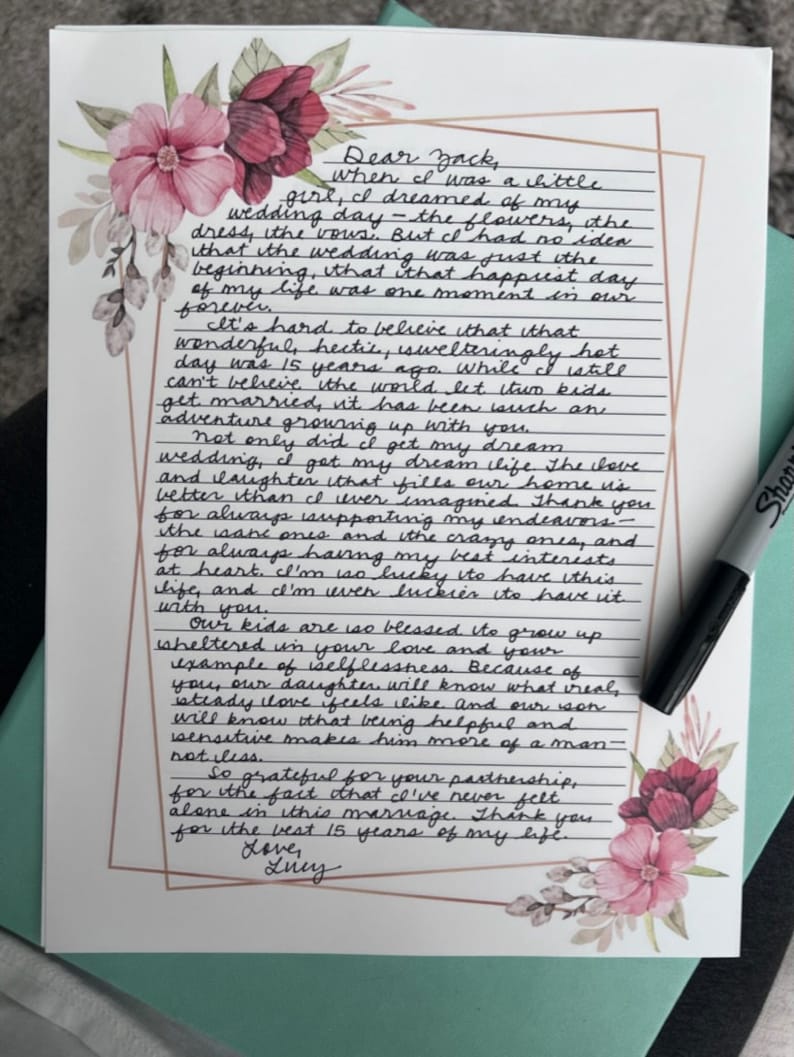 Dear Zack,
When I was a little
girl, I dreamed of my
wedding day — the flowers, the
dress, the vows. But I had no idea
that the wedding was just the
beginning, that that happiest day
of my life was one moment in our
forever.
It's hard to believe that that
wonderful, hectic, swelteringly hot
day was 15 years ago. While I still
can't believe the world let two kids
get married, it has been such an
adventure growing up with you.
Not only did I get my dream
wedding, I got my dream life. The love
and laughter that fills our home is
better than I ever imagined. Thank you
for always supporting my endeavors —
the sane ones and the crazy ones, and
for always having my best interests
at heart. I'm so lucky to have this
life, and I'm even luckier to have it
with you.
Our kids are so blessed to grow up
sheltered in your love and your
example of selflessness. Because of
you, our daughter will know what real,
steady love feels like. And our son
will know that being helpful and
sensitive makes him more of a man —
not less.
So grateful for your partnership,
for the fact that I've never felt
alone in this marriage. Thank you
for the best 15 years of my life.
Love,
Lucy
Sharp